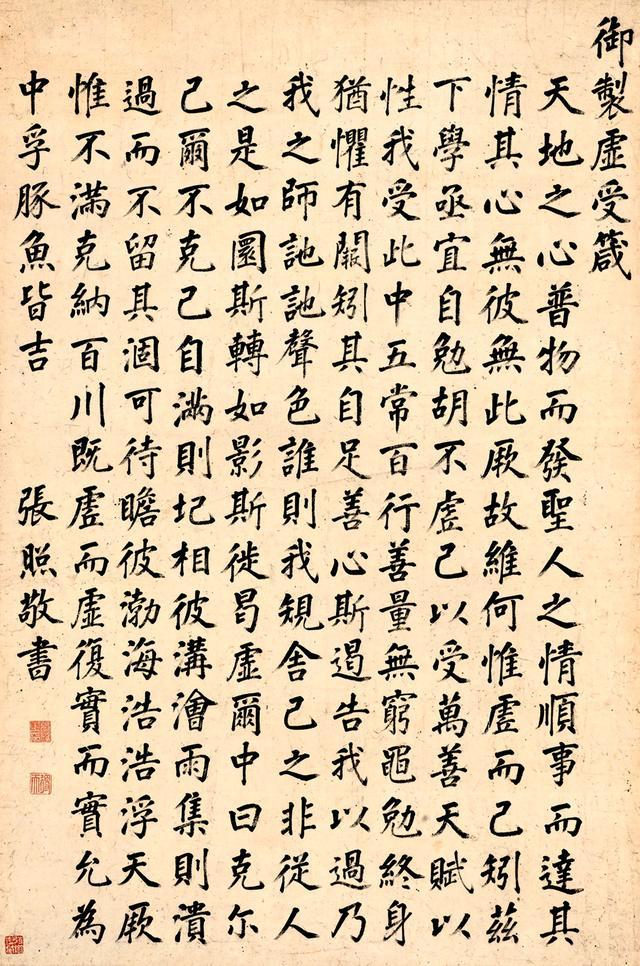 御製虛受箴
天地之心普物而發聖人之情順事而達其
情其心無彼無此厥故維何惟虛而已矧茲
下學亟宜自勉胡不虛己以受萬善天賦以
性我受此中五常百行善量無窮黽勉終身
猶懼有闕矧其自足善心斯遏告我以過乃
我之師訑訑聲色誰則我規舍己之非從人
之是如圜斯轉如影斯徙曷虛爾中曰克尔
己爾不克己自滿則圮相彼溝澮雨集則潰
過而不留其涸可待瞻彼渤海浩浩浮天厥
惟不滿克納百川既虛而虛復實而實允為
中孚豚魚皆吉
張照敬書